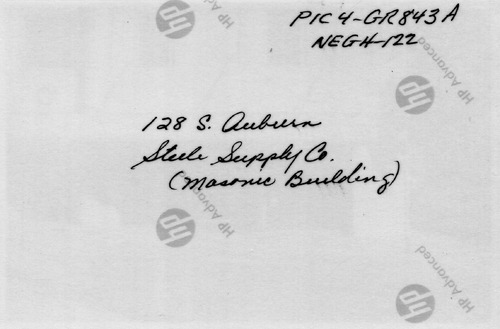 PIC 4-GR843A
NEGH-122
128 S. Auburn
Steele Supply Co.
(Masonic Building)
hp HP Advanced
hp HP Advanced
hp HP Advanced
hp HP Advanced